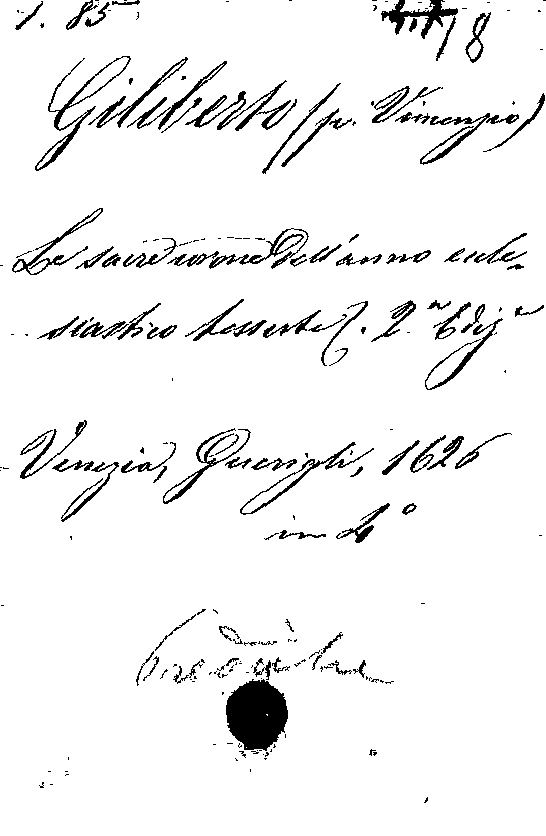 1. 85
18
Giliberto (p. Vincenzio)
Le sacre corone dell'anno eccle-
siastico tesserte &. 2ª Ediz.e
Venezia, Guerigli, 1626
in 4°
Prediche